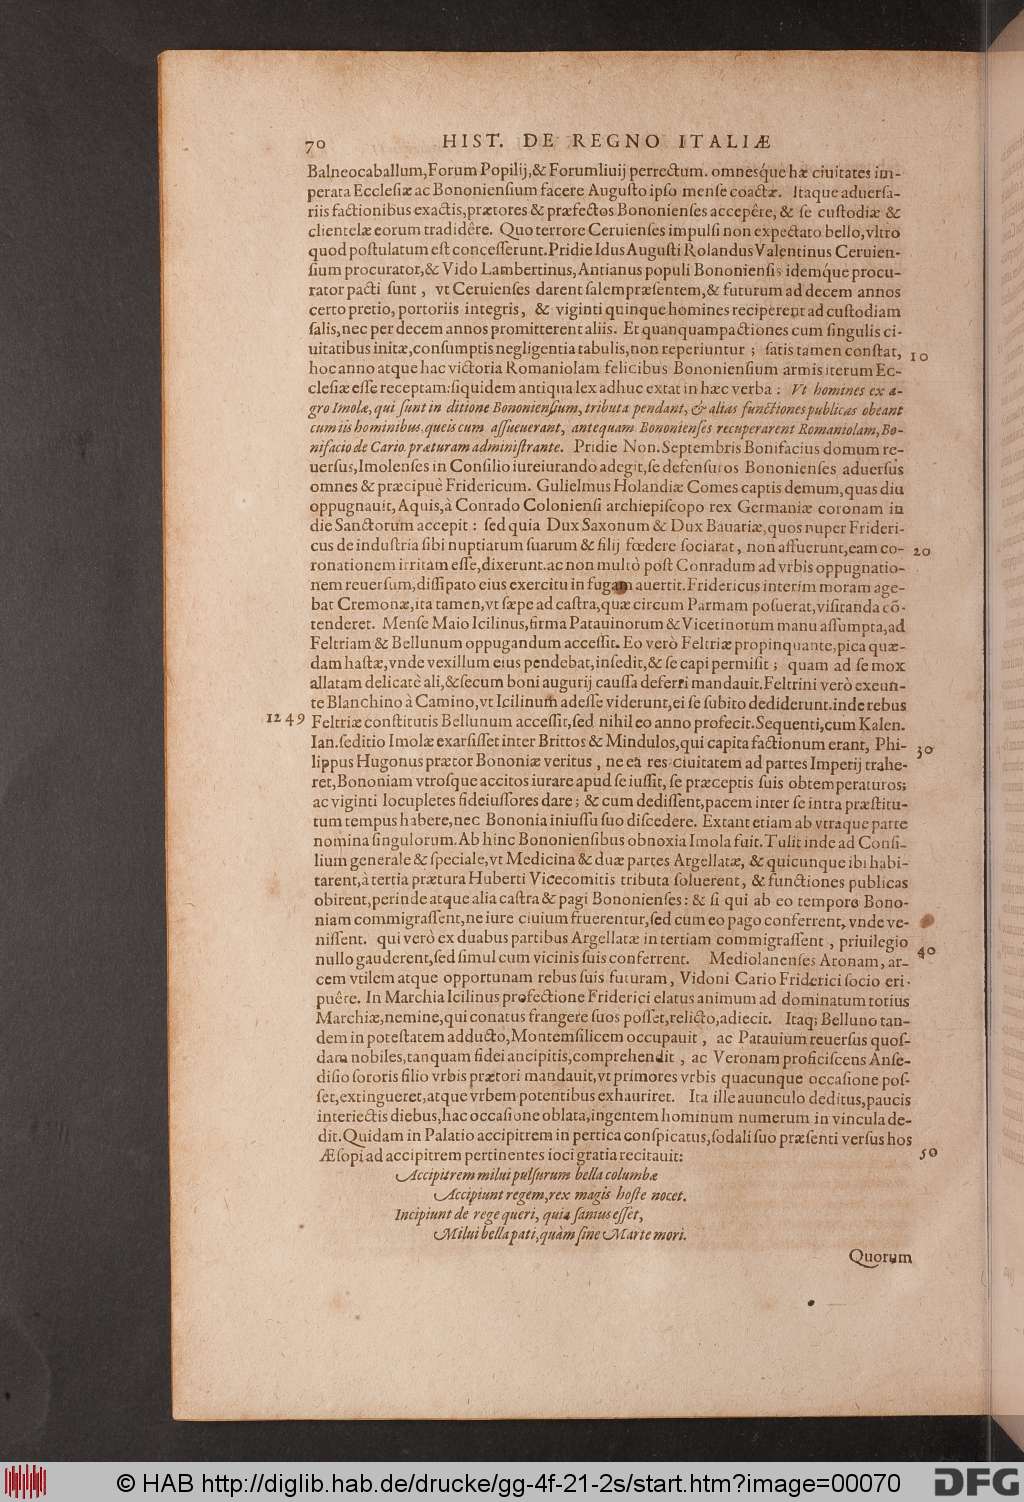 70 HIST. DE REGNO ITALIÆ
Balneocaballum,Forum Popilij,& Forumliuij perrectum. omnesq́ue hæ ciuitates im-
perata Ecclesiæ ac Bononiensium facere Augusto ipso mense coactæ. Itaque aduersa-
riis factionibus exactis,prætores & præfectos Bononienses accepêre, & se custodiæ &
clientelæ eorum tradidêre. Quo terrore Ceruienses impulsi non expectato bello,vltro
quod postulatum est concesserunt.Pridie Idus Augusti Rolandus Valentinus Ceruien-
sium procurator,& Vido Lambertinus,Antianus populi Bononiensis idemq́ue procu-
rator pacti sunt, vt Ceruienses darent salem præsentem,& futurum ad decem annos
certo pretio, portoriis integris, & viginti quinque homines reciperent ad custodiam
salis,nec per decem annos promitterent aliis. Et quanquam pactiones cum singulis ci-
uitatibus initæ,consumptis negligentia tabulis,non reperiuntur ; satis tamen constat, 10
hoc anno atque hac victoria Romaniolam felicibus Bononiensium armis iterum Ec-
clesiæ esse receptam:siquidem antiqua lex adhuc extat in hæc verba : Vt homines ex a-
gro Imolæ, qui sunt in ditione Bononiensium, tributa pendant, & alias functiones publicas obeant
cum iis hominibus, queis cum assueuerant, antequam Bononienses recuperarent Romaniolam, Bo-
nifacio de Cario præturam administrante. Pridie Non. Septembris Bonifacius domum re-
uersus,Imolenses in Consilio iureiurando adegit,se defensuros Bononienses aduersus
omnes & præcipuè Fridericum. Gulielmus Holandiæ Comes captis demum,quas diu
oppugnauit, Aquis,à Conrado Coloniensi archiepiscopo rex Germaniæ coronam in
die Sanctorum accepit : sed quia Dux Saxonum & Dux Bauariæ,quos nuper Frideri-
cus de industria sibi nuptiarum suarum & filij fœdere sociarat, non affuerunt,eam co- 20
ronationem irritam esse,dixerunt.ac non multò post Conradum ad vrbis oppugnatio-
nem reuersum,dissipato eius exercitu in fugam auertit.Fridericus interim moram age-
bat Cremonæ,ita tamen,vt sæpe ad castra,quæ circum Parmam posuerat,visitanda cō-
tenderet. Mense Maio Icilinus,firma Patauinorum & Vicetinorum manu assumpta,ad
Feltriam & Bellunum oppugandum accessit. Eo verò Feltriæ propinquante,pica quæ-
dam hastæ,vnde vexillum eius pendebat,insedit,& se capi permisit ; quam ad se mox
allatam delicatè ali,& secum boni augurij caussa deferri mandauit.Feltrini verò exeun-
te Blanchino à Camino,vt Icilinum adesse viderunt,ei se subito dediderunt.inde rebus
1249 Feltriæ constitutis Bellunum accessit,sed nihil eo anno profecit.Sequenti,cum Kalen.
Ian.seditio Imolæ exarsisset inter Brittos & Mindulos,qui capita factionum erant, Phi- 30
lippus Hugonus prætor Bononiæ veritus, ne ea res ciuitatem ad partes Imperij trahe-
ret,Bononiam vtrosque accitos iurare apud se iussit, se præceptis suis obtemperaturos;
ac viginti locupletes fideiussores dare ; & cum dedissent,pacem inter se intra præstitu-
tum tempus habere,nec Bononia iniussu suo discedere. Extant etiam ab vtraque parte
nomina singulorum. Ab hinc Bononiensibus obnoxia Imola fuit. Tulit inde ad Consi-
lium generale & speciale,vt Medicina & duæ partes Argellatæ, & quicunque ibi habi-
tarent,à tertia prætura Huberti Vicecomitis tributa soluerent, & functiones publicas
obirent,perinde atque alia castra & pagi Bononienses: & si qui ab eo tempore Bono-
niam commigrassent,ne iure ciuium fruerentur,sed cum eo pago conferrent, vnde ve-
nissent. qui verò ex duabus partibus Argellatæ in tertiam commigrassent, priuilegio 40
nullo gauderent,sed simul cum vicinis suis conferrent. Mediolanenses Aronam, ar-
cem vtilem atque opportunam rebus suis futuram, Vidoni Cario Friderici socio eri-
puêre. In Marchia Icilinus profectione Friderici elatus animum ad dominatum totius
Marchiæ,nemine,qui conatus frangere suos posset,relicto,adiecit. Itaq; Belluno tan-
dem in potestatem adducto,Montemsilicem occupauit, ac Patauium reuersus quos-
dam nobiles,tanquam fidei ancipitis,comprehendit, ac Veronam proficiscens Anse-
disio sororis filio vrbis prætori mandauit,vt primores vrbis quacunque occasione pos-
set,extingueret,atque vrbem potentibus exhauriret. Ita ille auunculo deditus,paucis
interiectis diebus,hac occasione oblata,ingentem hominum numerum in vincula de-
dit.Quidam in Palatio accipitrem in pertica conspicatus,sodali suo præsenti versus hos
Æsopi ad accipitrem pertinentes ioci gratia recitauit: 50
Accipitrem milui pulsurum bella columbæ
Accipiunt regem,rex magis hoste nocet.
Incipiunt de rege queri, quia sanius esset,
Milui bella pati,quàm sine Marte mori.
Quorum
© HAB http://diglib.hab.de/drucke/gg-4f-21-2s/start.htm?image=00070 DFG